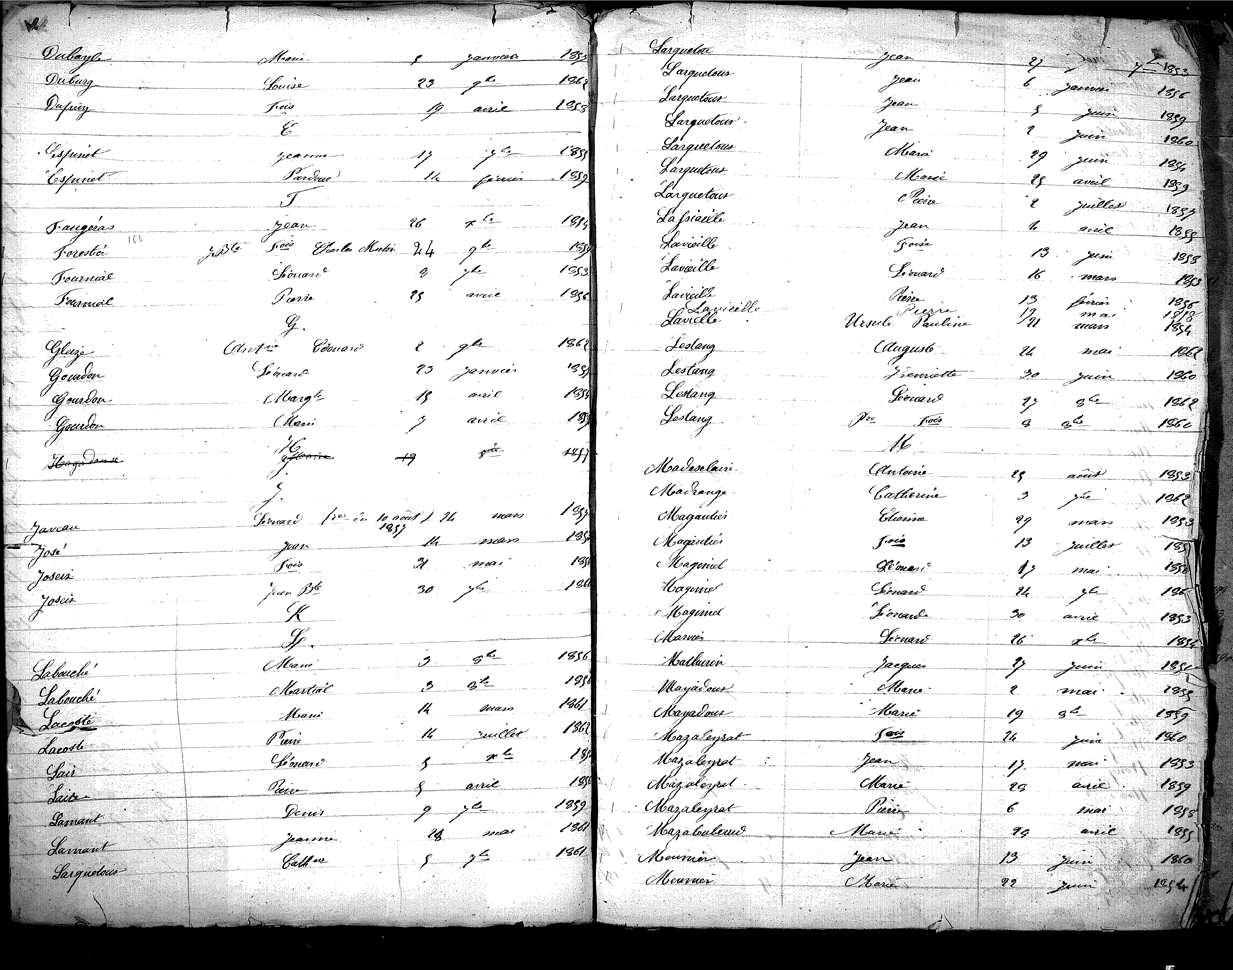 Dubayle Marie 5 janvier 1853
Duburg Louise 23 9bre 1862
Dupuy Fois 19 avril 1853
E
Espinet Jeanne 17 7bre 1855
Espinet Pardoux 14 février 1859
F
Faugéras Jean 26 xbre 1854
Forestier J. Bte Fois Charles Martin 24 9bre 1859
Fourniol Léonard 2 7bre 1853
Fourniol Pierre 25 avril 1856
G.
Gleize Antne Edouard 2 9bre 1862
Gourdon Léonard 23 janvier 185
Gourdon Margte 15 avril 185
Gourdon Marie 7 avril 185
H
19 1857
J.
Javeau Léonard (né du 10 août 1857) 24 mars 185
José Jean 14 mars 185
Joseix Fois 31 mai 185
Joseix Jean Bte 30 7bre 186
K
L.
Labouché Marie 3 8bre 1856
Labouché Martial 3 8bre 185
Lacoste Marie 14 mars 1861
Lacoste Pierre 14 juillet 1862
Lair Léonard 5 xbre 185
Pierre 5 avril 185
Lamant Denis 9 7bre 1859
Lamant Jeanne 28 mai 1861
Larquetoux Cathne 5 7bre 1861
Larquetoux Jean 27 7bre 1853
Larquetoux Jean 6 janvier 1856
Larquetoux Jean 5 juin 1859
Larquetoux Jean 2 juin 1860
Larquetoux Marie 29 juin 1854
Larquetoux Marie 25 avril 1859
Larquetoux Pierre 2 juillet 1857
Jean 2 avril 1855
Lavieille Foise 13 juin 1858
Lavieille Léonard 16 mars 1853
Lavieille Pierre 13 février 1856
Lavieille Pierre 12 mai 1858
Lavieille Ursule Pauline 21 mars 1854
Lestang Auguste 24 mai 1862
Lestang Henriette 30 juin 1860
Lestang Léonard 27 8bre 1862
Lestang Pre Fois 3 8bre 1860
M
Madeselaire Antoine 25 août 1853
Madrange Catherine 3 7bre 1862
Magautier Etienne 29 mars 1853
Magautier Fois 13 juillet 185
Magimel Léonard 17 mai 185
Magimel Léonard 24 7bre 186
Magimel Léonarde 30 avril 1853
Marnier Léonard 26 xbre 1854
Mathurin Jacques 27 juin 185
Mayadoux Marie 2 mai 1855
Mayadoux Marie 19 8bre 1859
Mazaleyrat Fois 24 juin 1860
Mazaleyrat Jean 17 mai 1853
Mazaleyrat Marie 28 avril 1859
Mazaleyrat Pierre 6 mai 1858
Mazaloubeaud Marie 29 avril 1855
Meunier Jean 13 juin 1860
Meunier Marie 22 juin 1854